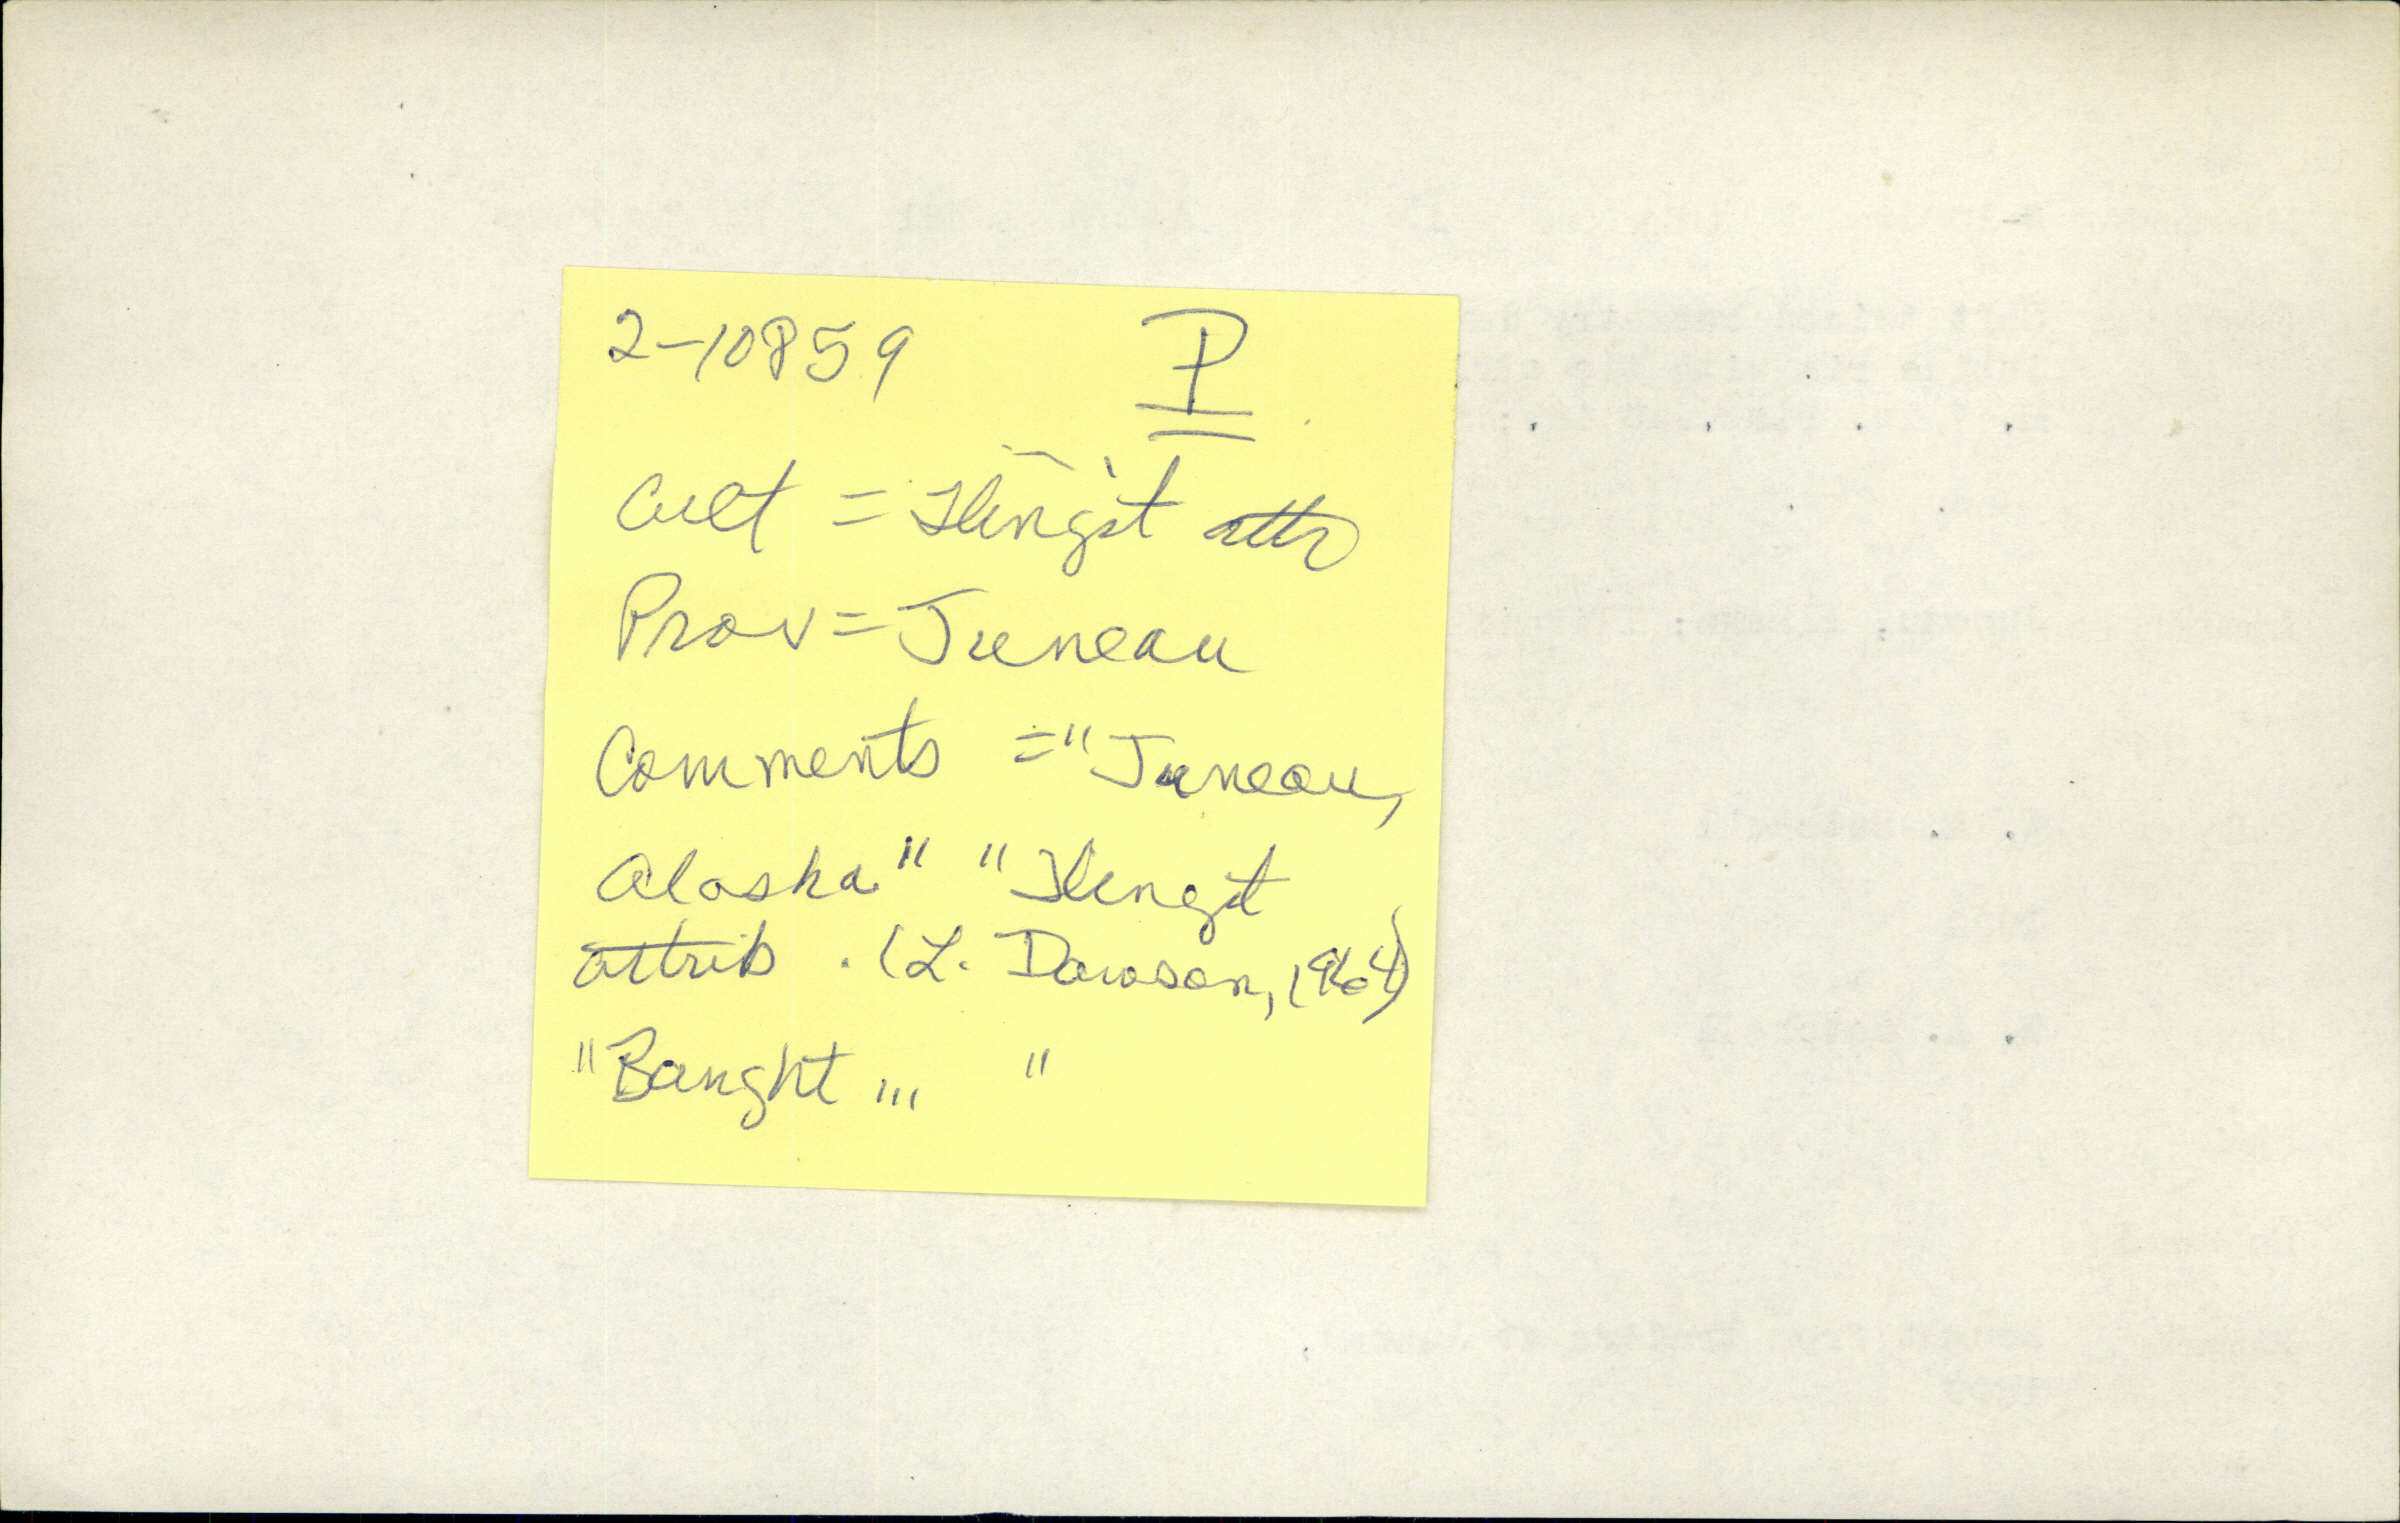 2-10859 P
Cult = Tlingit
Prov = Juneau
Comments = "Juneau,
Alaska" "Tlingit
attrib. (L. Dawson, 1964)
"Bought ... "